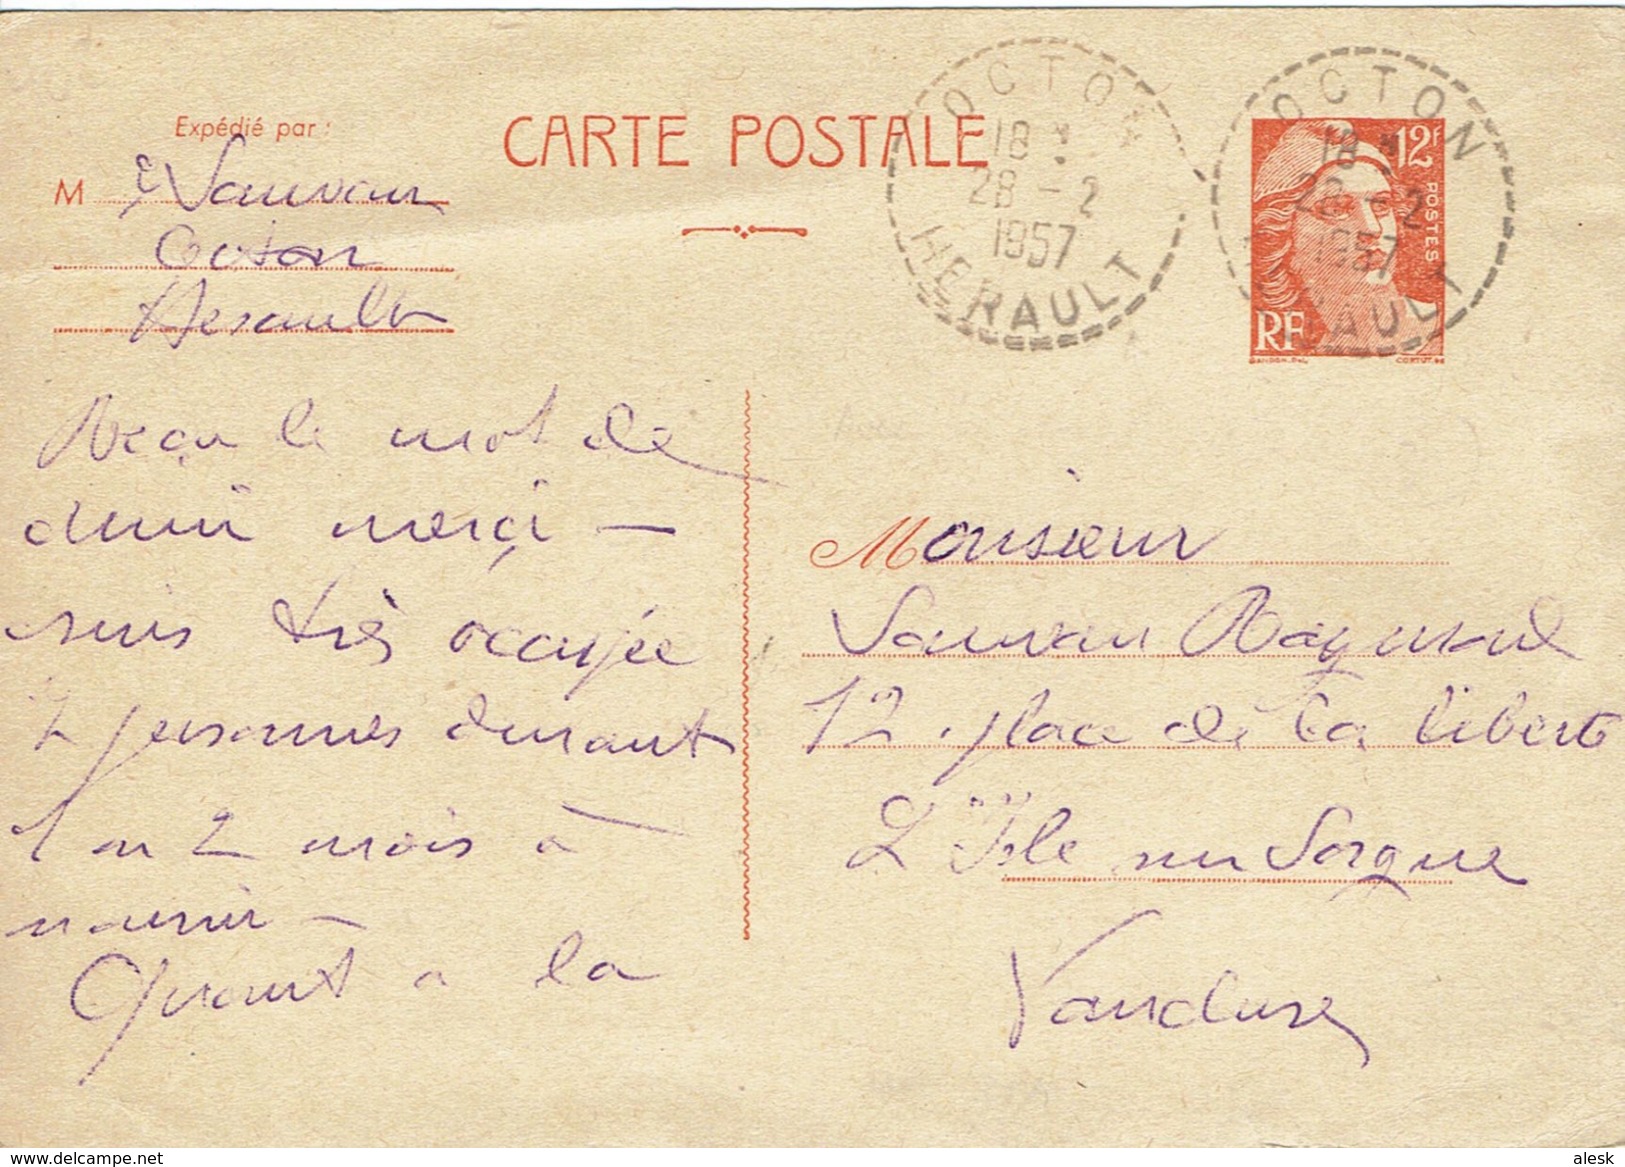 Expédié par :
CARTE POSTALE
M e Sauvan
Octon
Herault
OCTON
18 *
28 - 2
1957
HERAULT
OCTON
18 *
28 - 2
1957
HERAULT
12F
POSTES
RF
GANDON DEL.
CORTOT SC
Reçu le mot de
merci —
suis très occupée
2 personnes durant
1 ou 2 mois à
nourrir —
Quant à la
Monsieur
Sauvan Raymond
12 . place de la liberté
L'Isle sur Sorgue
Vaucluse
alesk
www.delcampe.net